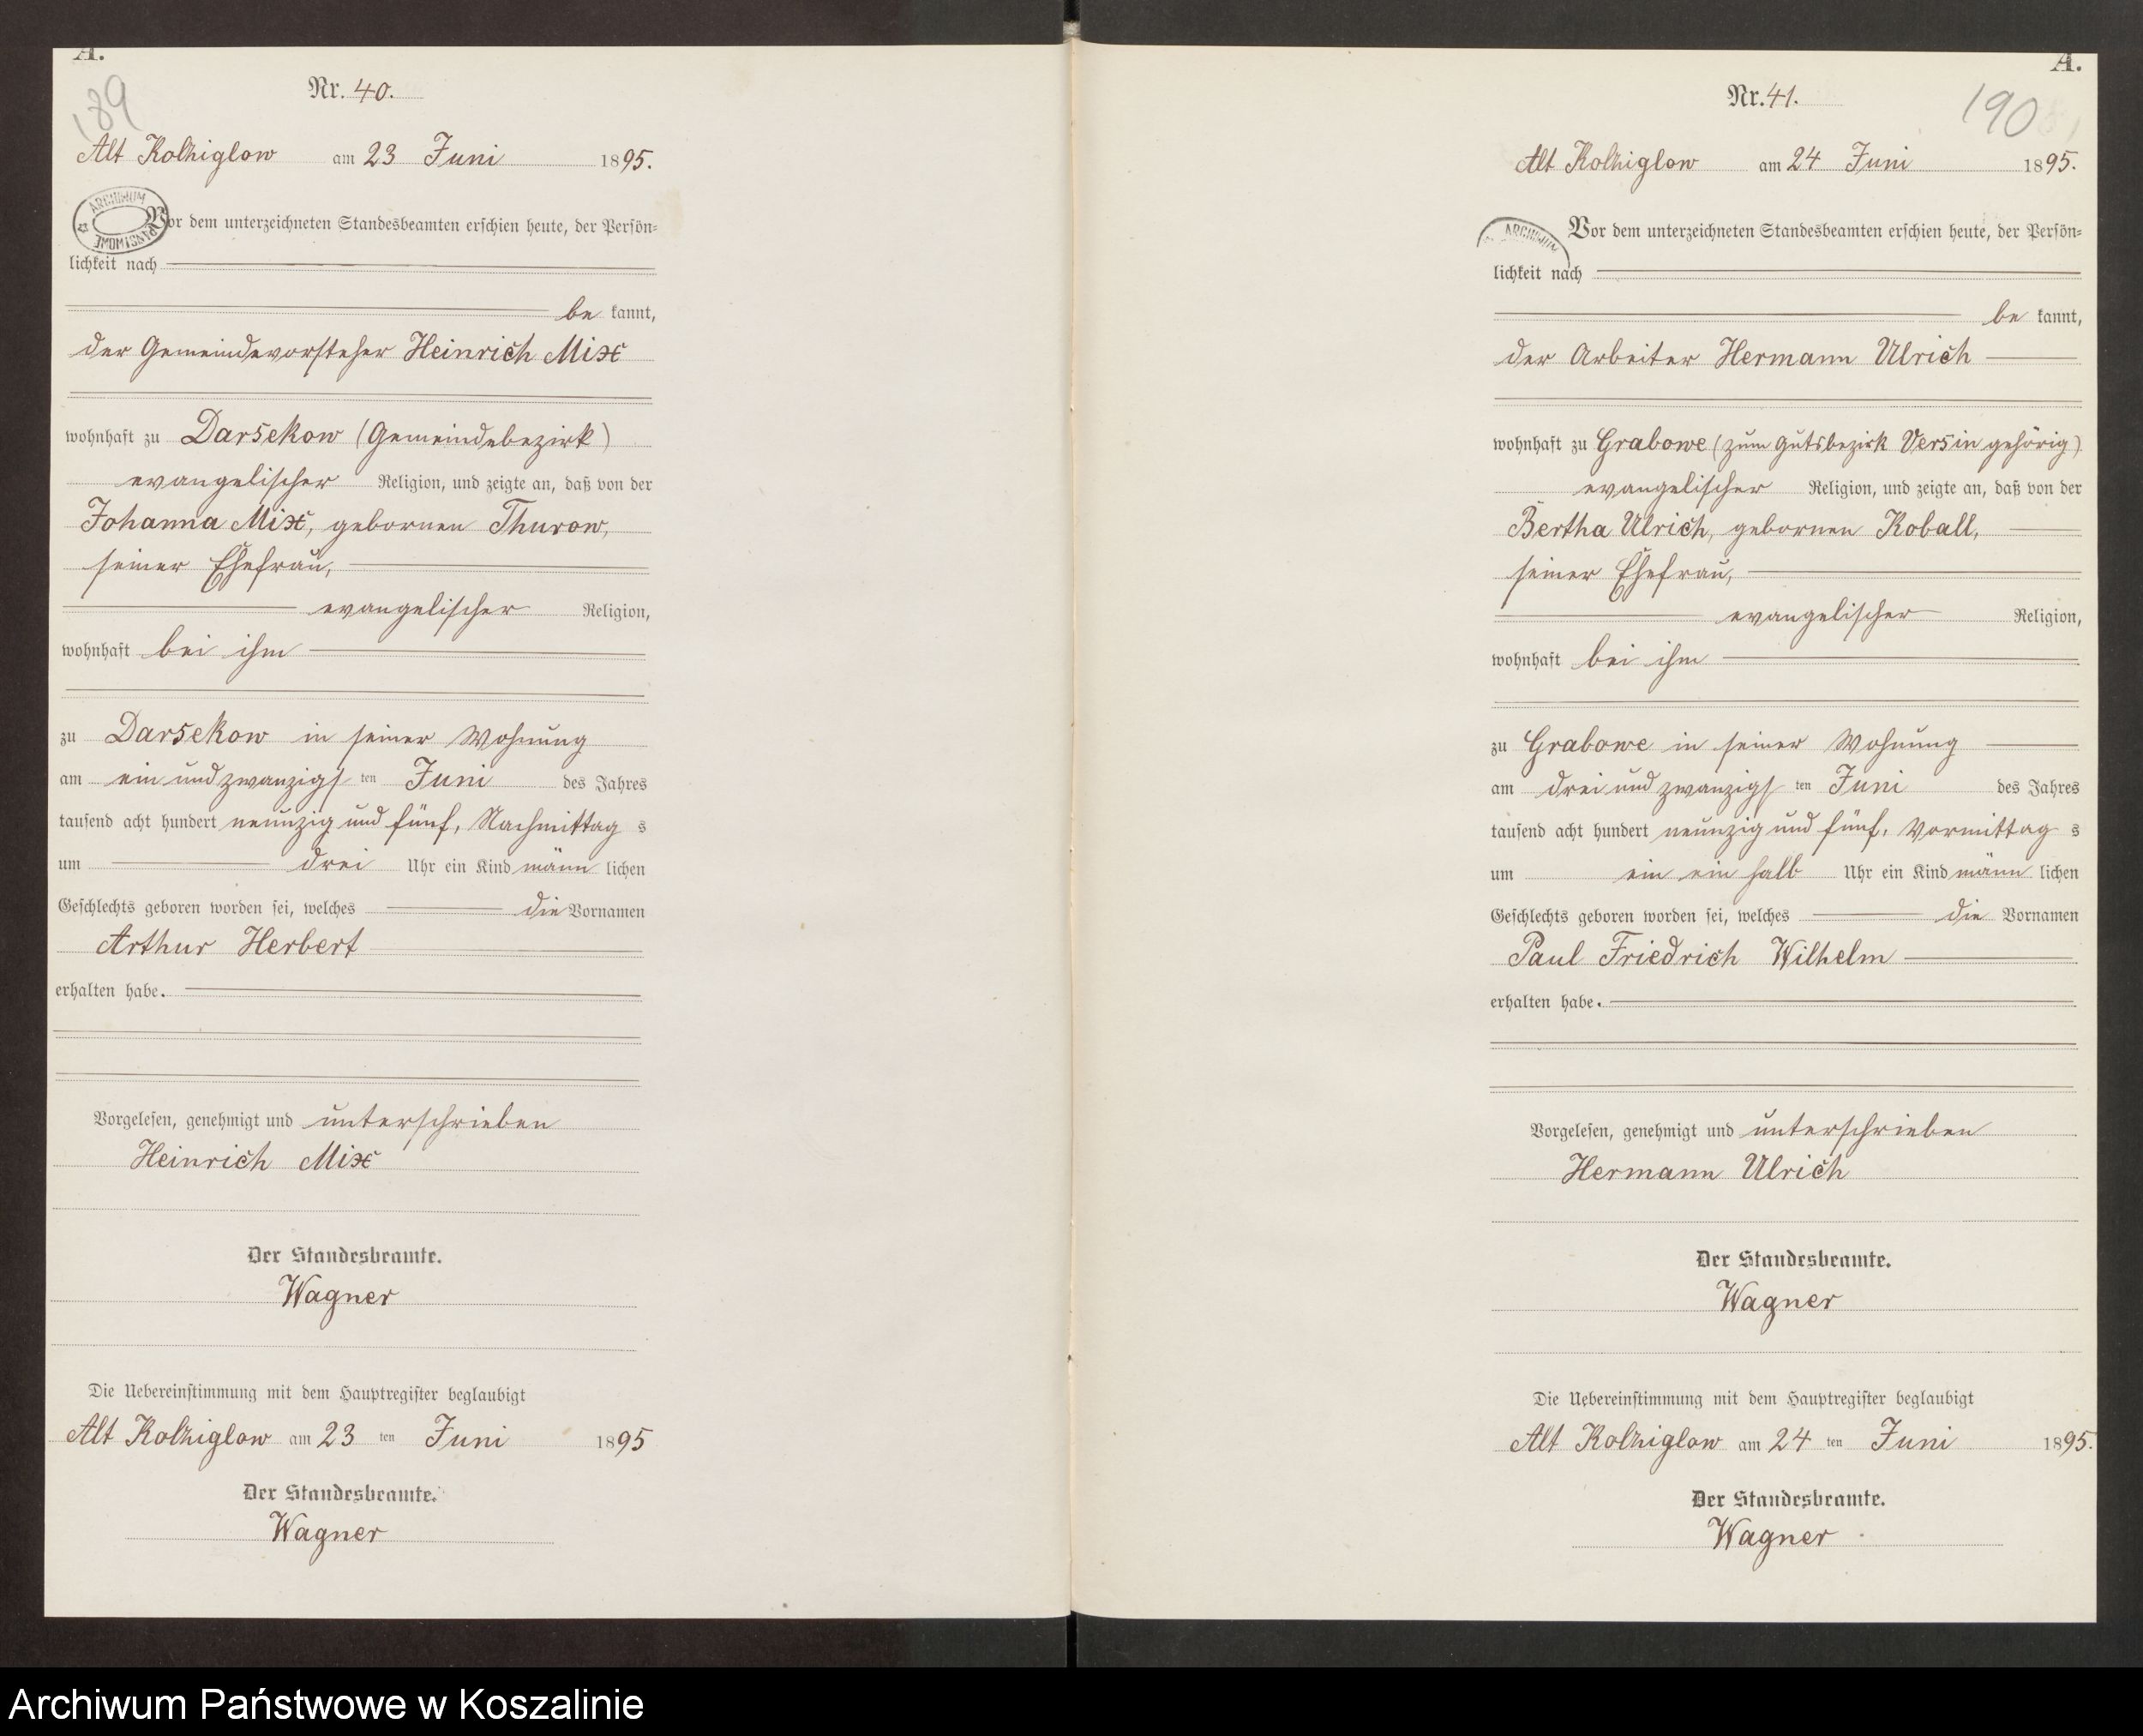 A.
189
Nr. 40.
Alt Kolziglow am 23 Juni 1895.
ARCHIWUM PAŃSTWOWE
Vor dem unterzeichneten Standesbeamten erschien heute, der Persön-
lichkeit nach
be kannt,
der Gemeindevorsteher Heinrich Mix
wohnhaft zu Darsekow (Gemeindebezirk)
evangelischer Religion, und zeigte an, daß von der
Johanna Mix, gebornen Thurow,
seiner Ehefrau,
evangelischer Religion,
wohnhaft bei ihm
zu Darsekow in seiner Wohnung
am ein und zwanzigs ten Juni des Jahres
tausend acht hundert neunzig und fünf, Nachmittag s
um drei Uhr ein Kind männ lichen
Geschlechts geboren worden sei, welches die Vornamen
Arthur Herbert
erhalten habe.
Vorgelesen, genehmigt und unterschrieben
Heinrich Mix
Der Standesbeamte.
Wagner
Die Uebereinstimmung mit dem Hauptregister beglaubigt
Alt Kolziglow am 23 ten Juni 1895
Der Standesbeamte.
Wagner
A.
190
Nr. 41.
Alt Kolziglow am 24 Juni 1895.
ARCHIWUM
Vor dem unterzeichneten Standesbeamten erschien heute, der Persön-
lichkeit nach
be kannt,
der Arbeiter Hermann Ulrich
wohnhaft zu Grabowe (zum Gutsbezirk Versin gehörig)
evangelischer Religion, und zeigte an, daß von der
Bertha Ulrich, gebornen Koball,
seiner Ehefrau,
evangelischer Religion,
wohnhaft bei ihm
zu Grabowe in seiner Wohnung
am drei und zwanzigs ten Juni des Jahres
tausend acht hundert neunzig und fünf, Vormittag s
um ein ein halb Uhr ein Kind männ lichen
Geschlechts geboren worden sei, welches die Vornamen
Paul Friedrich Wilhelm
erhalten habe.
Vorgelesen, genehmigt und unterschrieben
Hermann Ulrich
Der Standesbeamte.
Wagner
Die Uebereinstimmung mit dem Hauptregister beglaubigt
Alt Kolziglow am 24 ten Juni 1895.
Der Standesbeamte.
Wagner
Archiwum Państwowe w Koszalinie